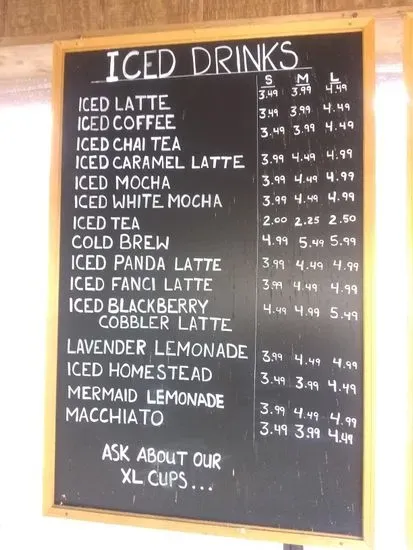 ICED DRINKS
S M L
ICED LATTE 3.49 3.99 4.49
ICED COFFEE 3.49 3.99 4.49
ICED CHAI TEA 3.49 3.99 4.49
ICED CARAMEL LATTE 3.99 4.49 4.99
ICED MOCHA 3.99 4.49 4.99
ICED WHITE MOCHA 3.99 4.49 4.99
ICED TEA 2.00 2.25 2.50
COLD BREW 4.99 5.49 5.99
ICED PANDA LATTE 3.99 4.49 4.99
ICED FANCI LATTE 3.99 4.49 4.99
ICED BLACKBERRY 4.49 4.99 5.49
COBBLER LATTE
LAVENDER LEMONADE 3.99 4.49 4.99
ICED HOMESTEAD 3.49 3.99 4.49
MERMAID LEMONADE 3.99 4.49 4.99
MACCHIATO 3.49 3.99 4.49
ASK ABOUT OUR
XL CUPS...